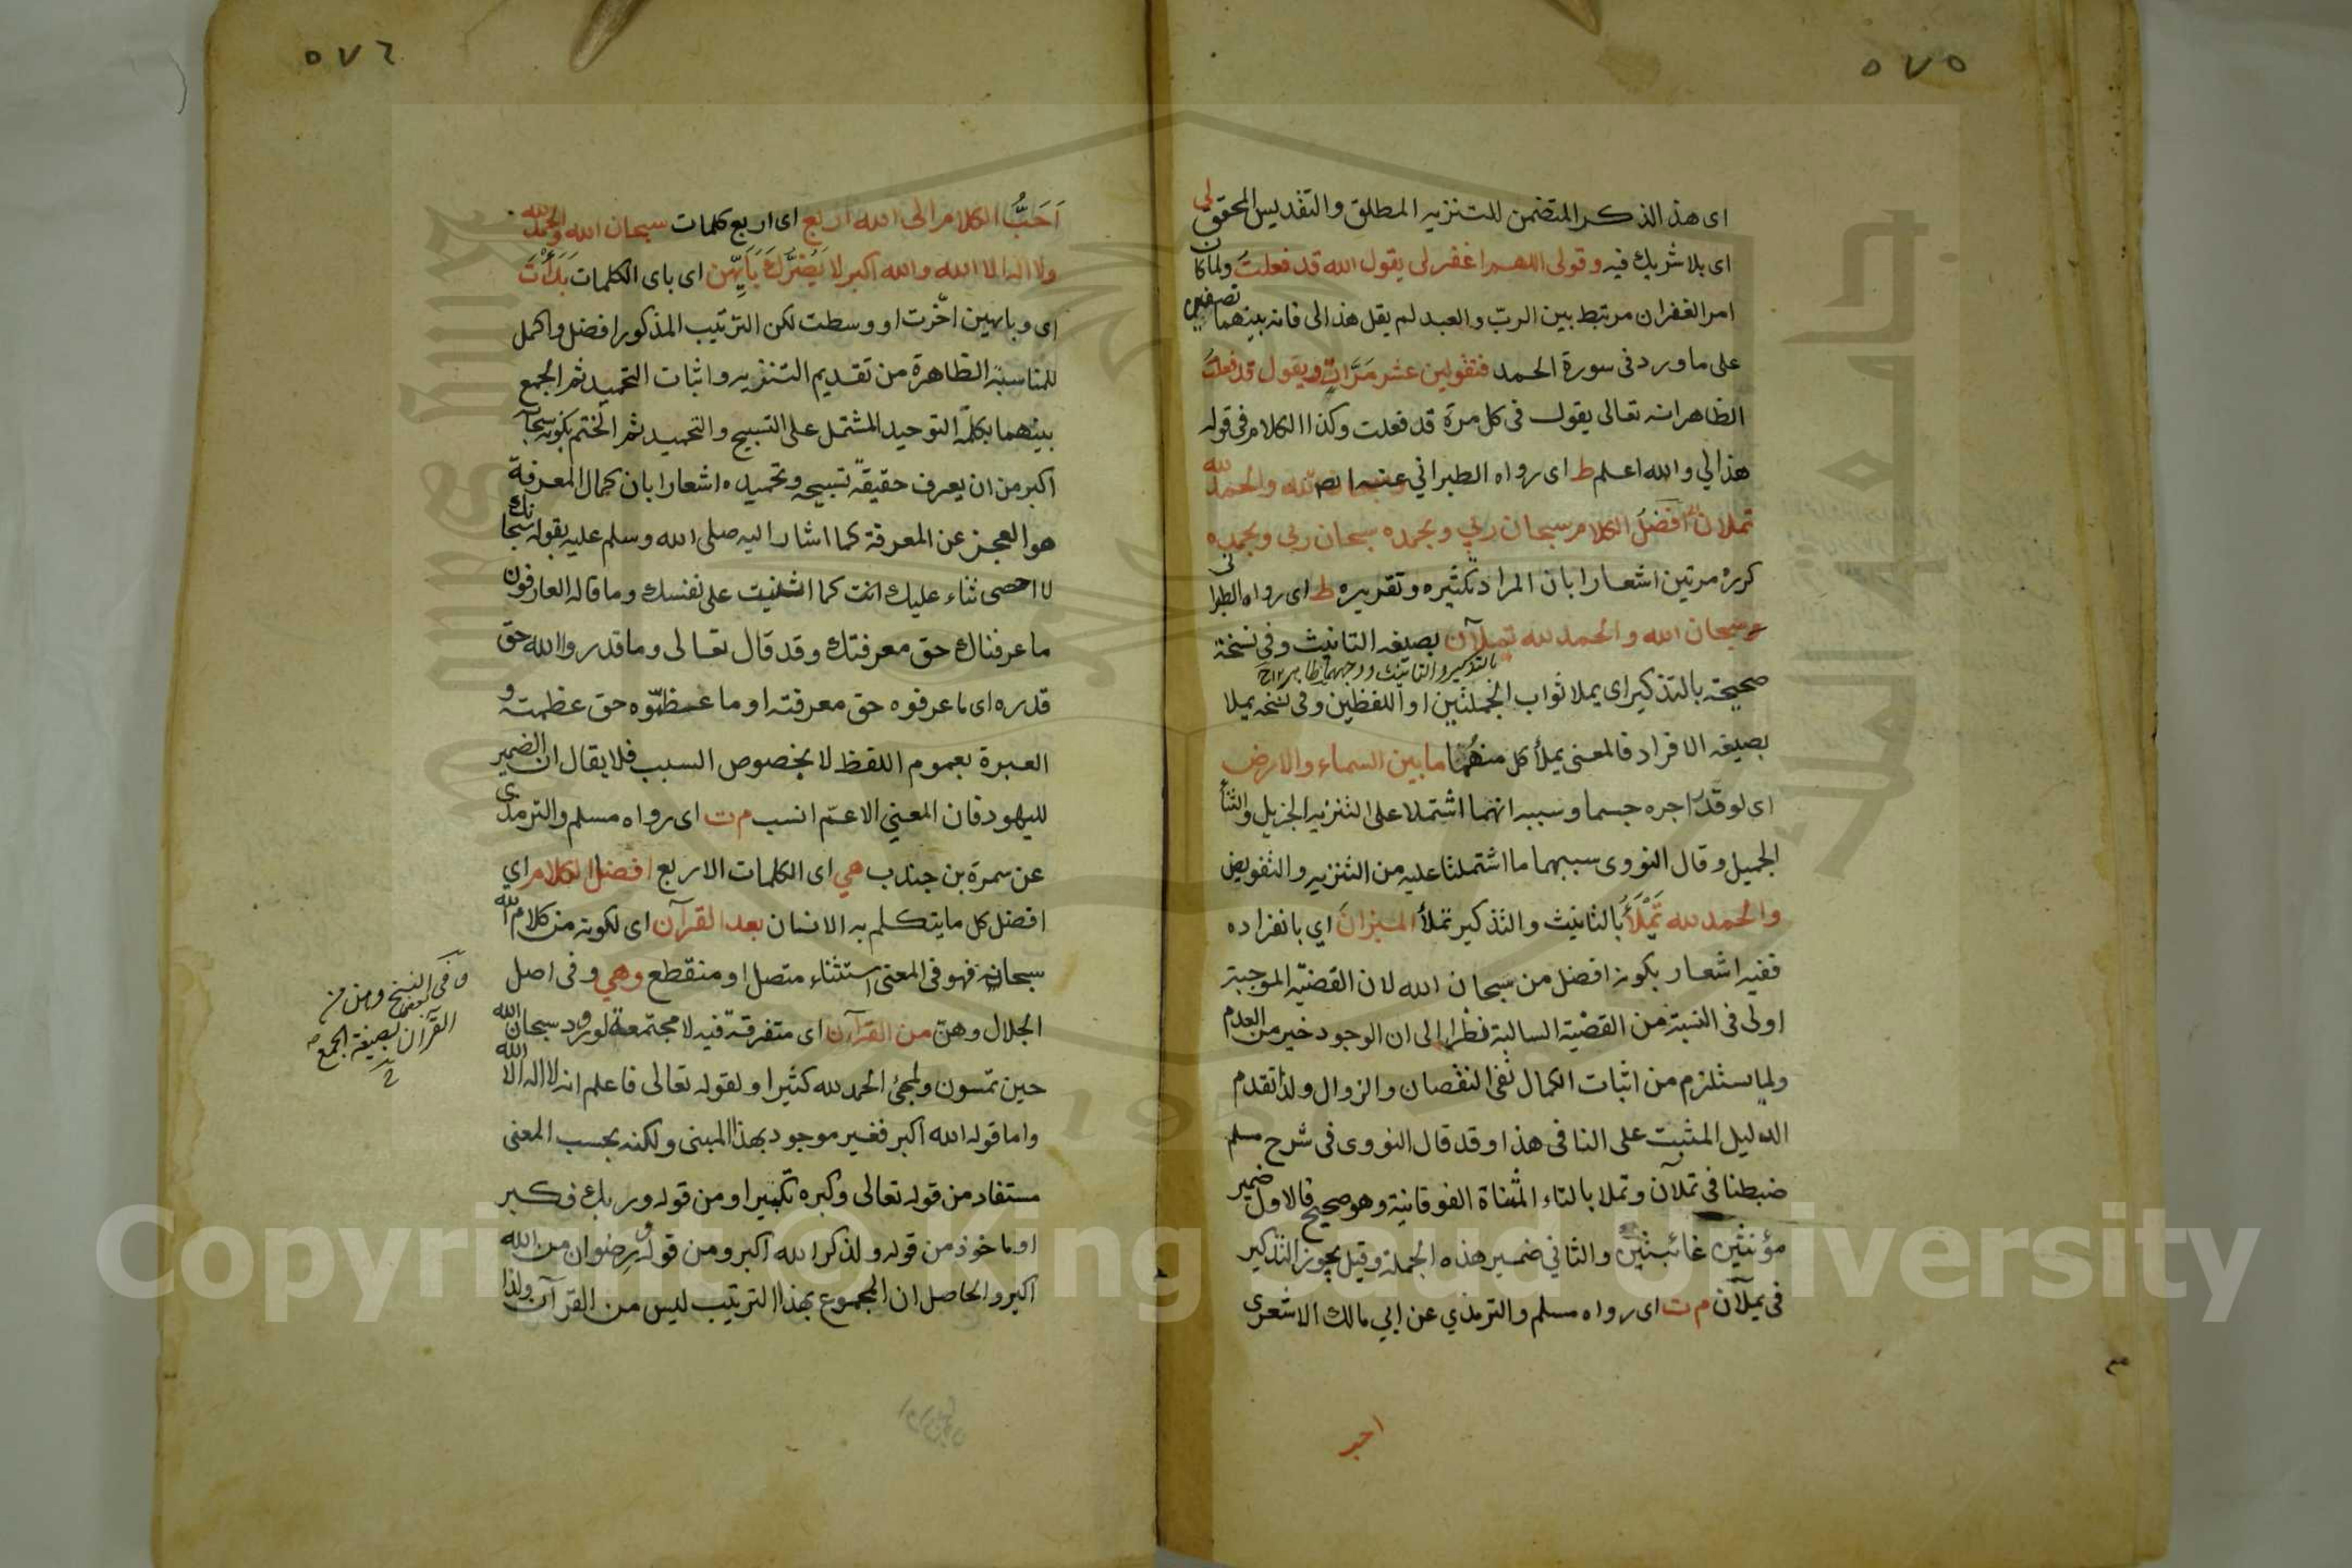 ٥٧٥
اى هذا الذكر المتضمن للتنزيه المطلق والتقديس المحقق لى
اى بلا شريك فيه وقولى اللهم اغفر لى يقول الله قد فعلت ولما كان
امر الغفران مرتبط بين الرب والعبد لم يقل هذا لى فانه بينهما نصفين
على ما ورد فى سورة الحمد فتقولين عشر مرات ويقول قد فعلت
الظاهر انه تعالى يقول فى كل مرة قد فعلت وكذا الكلام فى قوله
هذا لي والله اعلم ط اى رواه الطبراني عنه ايضا والحمد لله
تملان افضل الكلام سبحان ربي وبحمده سبحان ربي وبحمده
كرره مرتين اشعارا بان المراد تكثيره وتقريره ط اى رواه الطبرانى
سبحان الله والحمد لله تملآن بصيغة التانيث وفي نسخة
بالتذكير والتانيث ووجههما ظاهر
صحيحة بالتذكير اى يملا ثواب الجملتين او اللفظين وفى نسخة يملا
بصيغة الافراد فالمعنى يملأ كل منهما ما بين السماء والارض
اى لو قدر اجره جسما وسببه انهما اشتملا على التنزيه الجزيل والثنآ
الجميل وقال النووى سببهما ما اشتملتا عليه من التنزيه والتفويض
والحمد لله تملأ بالتانيث والتذكير تملأ الميزان اي بانفراده
ففيه اشعار بكونه افضل من سبحان الله لان القضية الموجبة
اولى فى النسبة من القضية السالبة نظرا الى ان الوجود خير من العدم
ولما يستلزم من اثبات الكمال نفى النقصان والزوال ولذا تقدم
الدليل المثبت على النافى هذا وقد قال النووى فى شرح مسلم
ضبطنا فى تملآن وتملا بالتاء المثناة الفوقانية وهو صحيح فالاول ضمير
مؤنثين غائبتين والثاني ضمير هذه الجملة وقيل يجوز التذكير
فى يملآن م ت اى رواه مسلم والترمذي عن ابي مالك الاشعرى
٥٧٦
اَحَبُّ الكلام الى الله اربع اى اربع كلمات سبحان الله والحمد لله
ولا اله الا الله والله اكبر لا يضرك بايهن اى باى الكلمات بدأت
اى وبايهن اخّرت او وسطت لكن الترتيب المذكور افضل واكمل
للمناسبة الظاهرة من تقديم التنزيه واثبات التحميد ثم الجمع
بينهما بكلمة التوحيد المشتمل على التسبيح والتحميد ثم الختم بكونه سبحانه
اكبر من ان يعرف حقيقة تسبيحه وتحميده اشعارا بان كمال المعرفة
هو العجز عن المعرفة كما اشار اليه صلى الله وسلم عليه بقوله سبحانك
لا احصى ثناء عليك انت كما اثنيت على نفسك وما قاله العارفون
ما عرفناك حق معرفتك وقد قال تعالى وما قدروا الله حق
قدره اى ما عرفوه حق معرفته او ما عظموه حق عظمته و
العبرة بعموم اللفظ لا بخصوص السبب فلا يقال ان الضمير
لليهود فان المعني الاعم انسب م ت اى رواه مسلم والترمذى
عن سمرة بن جندب هي اى الكلمات الاربع افضل الكلام اي
افضل كل ما يتكلم به الانسان بعد القرآن اى لكونه من كلام الله
سبحانه فهو فى المعنى استثناء متصل او منقطع وهي وفى اصل
الجلال وهن من القرآن اى متفرقة فيه لا مجتمعة لورود سبحان الله
حين تمسون ولمجئ الحمد لله كثيرا ولقوله تعالى فاعلم انه لا اله الا الله
واما قوله الله اكبر فغير موجود بهذا المبنى ولكنه بحسب المعنى
مستفاد من قوله تعالى وكبره تكبيرا ومن قوله وربك فكبر
او ماخوذ من قوله ولذكر الله اكبر ومن قوله ورضوان من الله
اكبر والحاصل ان المجموع بهذا الترتيب ليس من القرآن ولذا
وفى بعض النسخ وهن من
القرآن بصيغة الجمع
Copyright © King Saud University